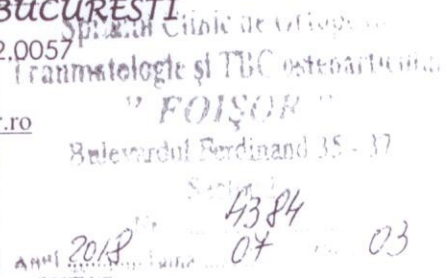 BUCUREȘTI
2.0057
Spitalul Clinic de Ortopedie
Traumatologie și TBC osteoarticular
" FOIȘOR "
.ro
Bulevardul Ferdinand 35 - 37
4384
Anul 2018 Luna 07 03